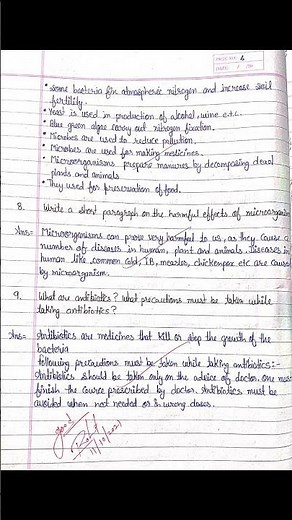 PAGE NO. 6
DATE:
• Some bacteria fix atmospheric nitrogen and increase soil
fertility.
• Yeast is used in production of alcohol, wine e.t.c.
• Blue green algae carry out nitrogen fixation.
• Microbes are used to reduce pollution.
• Microbes are used for making medicines.
• Microorganisms prepare manures by decomposing dead
plants and animals
• They used for preservation of food.
8. Write a short paragraph on the harmful effects of microorganism
Ans= Microorganisms can prove very harmful to us, as they cause a
number of diseases in human, plant and animals. Diseases in
human like common cold, TB, measles, chickenpox etc are caused
by microorganism.
9. What are antibiotics? What precautions must be taken while
taking antibiotics?
Ans= Antibiotics are medicines that kill or stop the growth of the
bacteria
Following precautions must be taken while taking antibiotics:-
Antibiotics should be taken only on the advice of doctor. One must
finish the cource prescribed by doctor. Antibiotics must be
avoided when not needed or in wrong doses.
Good
11/10/2021